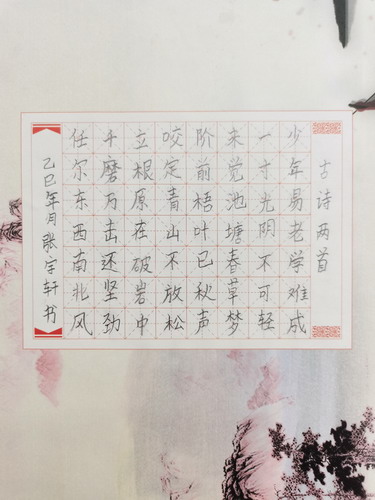 古诗两首
少年易老学难成
一寸光阴不可轻
未觉池塘春草梦
阶前梧叶已秋声
咬定青山不放松
立根原在破岩中
千磨万击还坚劲
任尔东西南北风
乙巳年月张宇轩书